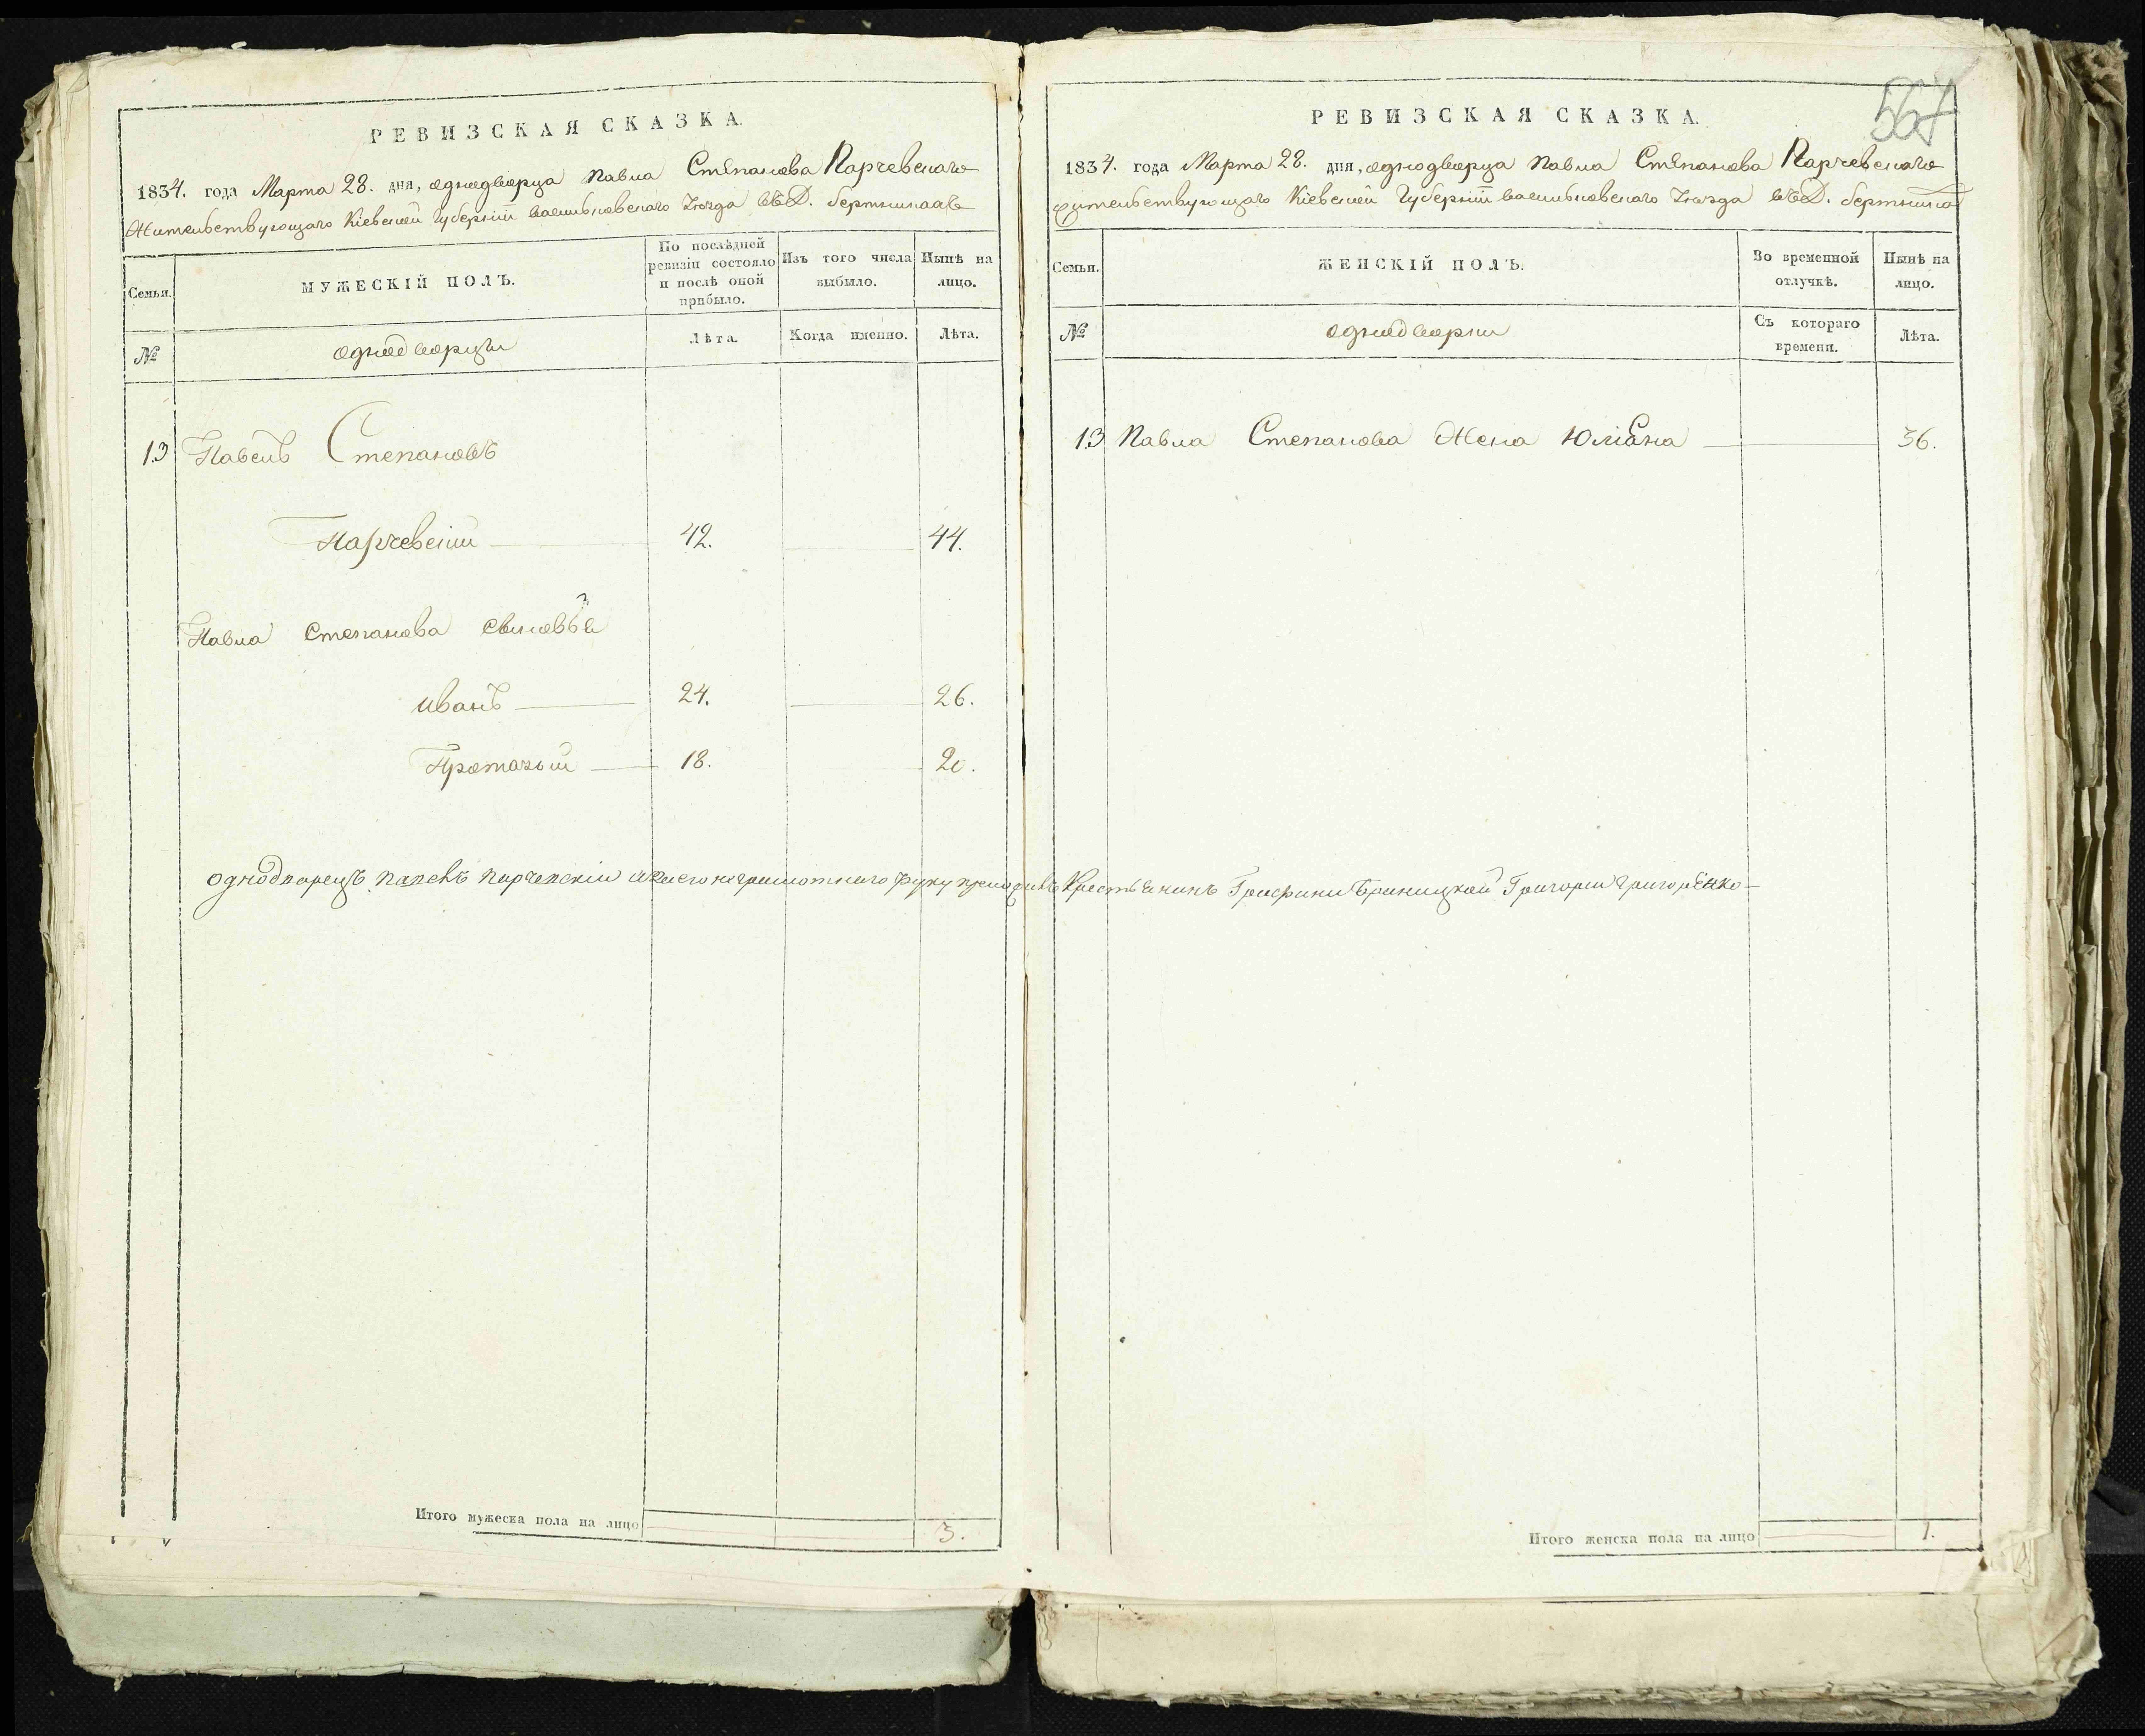 РЕВИЗСКАЯ СКАЗКА.
1834. года Марта 28. дня, однодворца Павла Степанова Парчевскаго
Жительствующаго Кіевской Губерніи Васильковскаго Уезда въ Д.
Семьи.
МУЖЕСКІЙ ПОЛЪ.
По послѣдней ревизіи состояло и послѣ оной прибыло.
Изъ того числа выбыло.
Нынѣ на лицо.
№
однодворцы
Лѣта.
Когда именно.
Лѣта.
13 Павелъ Степановъ
Парчевскій 42. 44.
Павла Степанова сыновья
Иванъ 24. 26.
Протазый 18. 20.
однодворецъ Павелъ Парчевскій а за его неграмотнаго руку приложилъ Крестьянинъ Графини Браницкой Григорий Григоренко
Итого мужеска пола на лицо 3.
567
РЕВИЗСКАЯ СКАЗКА.
1834. года Марта 28. дня, однодворца Павла Степанова Парчевскаго
Жительствующаго Кіевской Губерніи Васильковскаго Уезда въ Д.
Семьи.
ЖЕНСКІЙ ПОЛЪ.
Во временной отлучкѣ.
Нынѣ на лицо.
№
однодворки
Съ котораго времени.
Лѣта.
13 Павла Степанова Жена Юліана 36.
Итого женска пола на лицо 1.